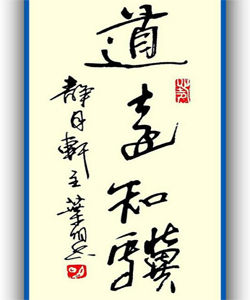 道遠知驥
靜月軒主葉